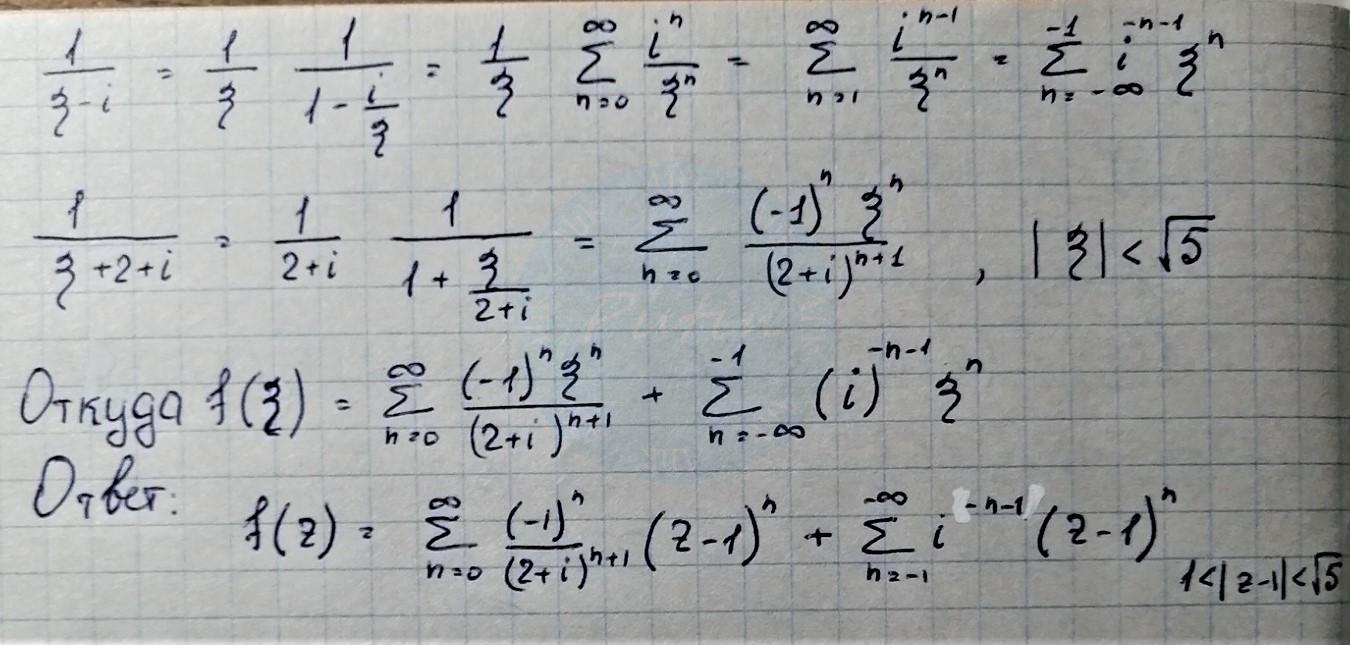 1/(ξ-i) = 1/ξ · 1/(1 - i/ξ) = 1/ξ ∑_{n=0}^{∞} i^n/ξ^n = ∑_{n=1}^{∞} i^{n-1}/ξ^n = ∑_{n=-∞}^{-1} i^{-n-1} ξ^n
1/(ξ+2+i) = 1/(2+i) · 1/(1 + ξ/(2+i)) = ∑_{n=0}^{∞} (-1)^n ξ^n/(2+i)^{n+1} , |ξ| < √5
Откуда f(ξ) = ∑_{n=0}^{∞} (-1)^n ξ^n/(2+i)^{n+1} + ∑_{n=-∞}^{-1} (i)^{-n-1} ξ^n
Ответ:
f(z) = ∑_{n=0}^{∞} (-1)^n/(2+i)^{n+1} (z-1)^n + ∑_{n=-1}^{-∞} i^{-n-1} (z-1)^n
1<|z-1|<√5